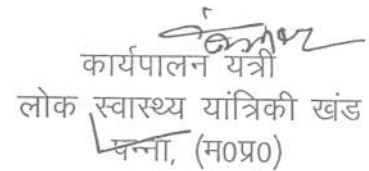 कार्यपालन यंत्री
लोक स्वास्थ्य यांत्रिकी खंड
पन्ना, (म0प्र0)